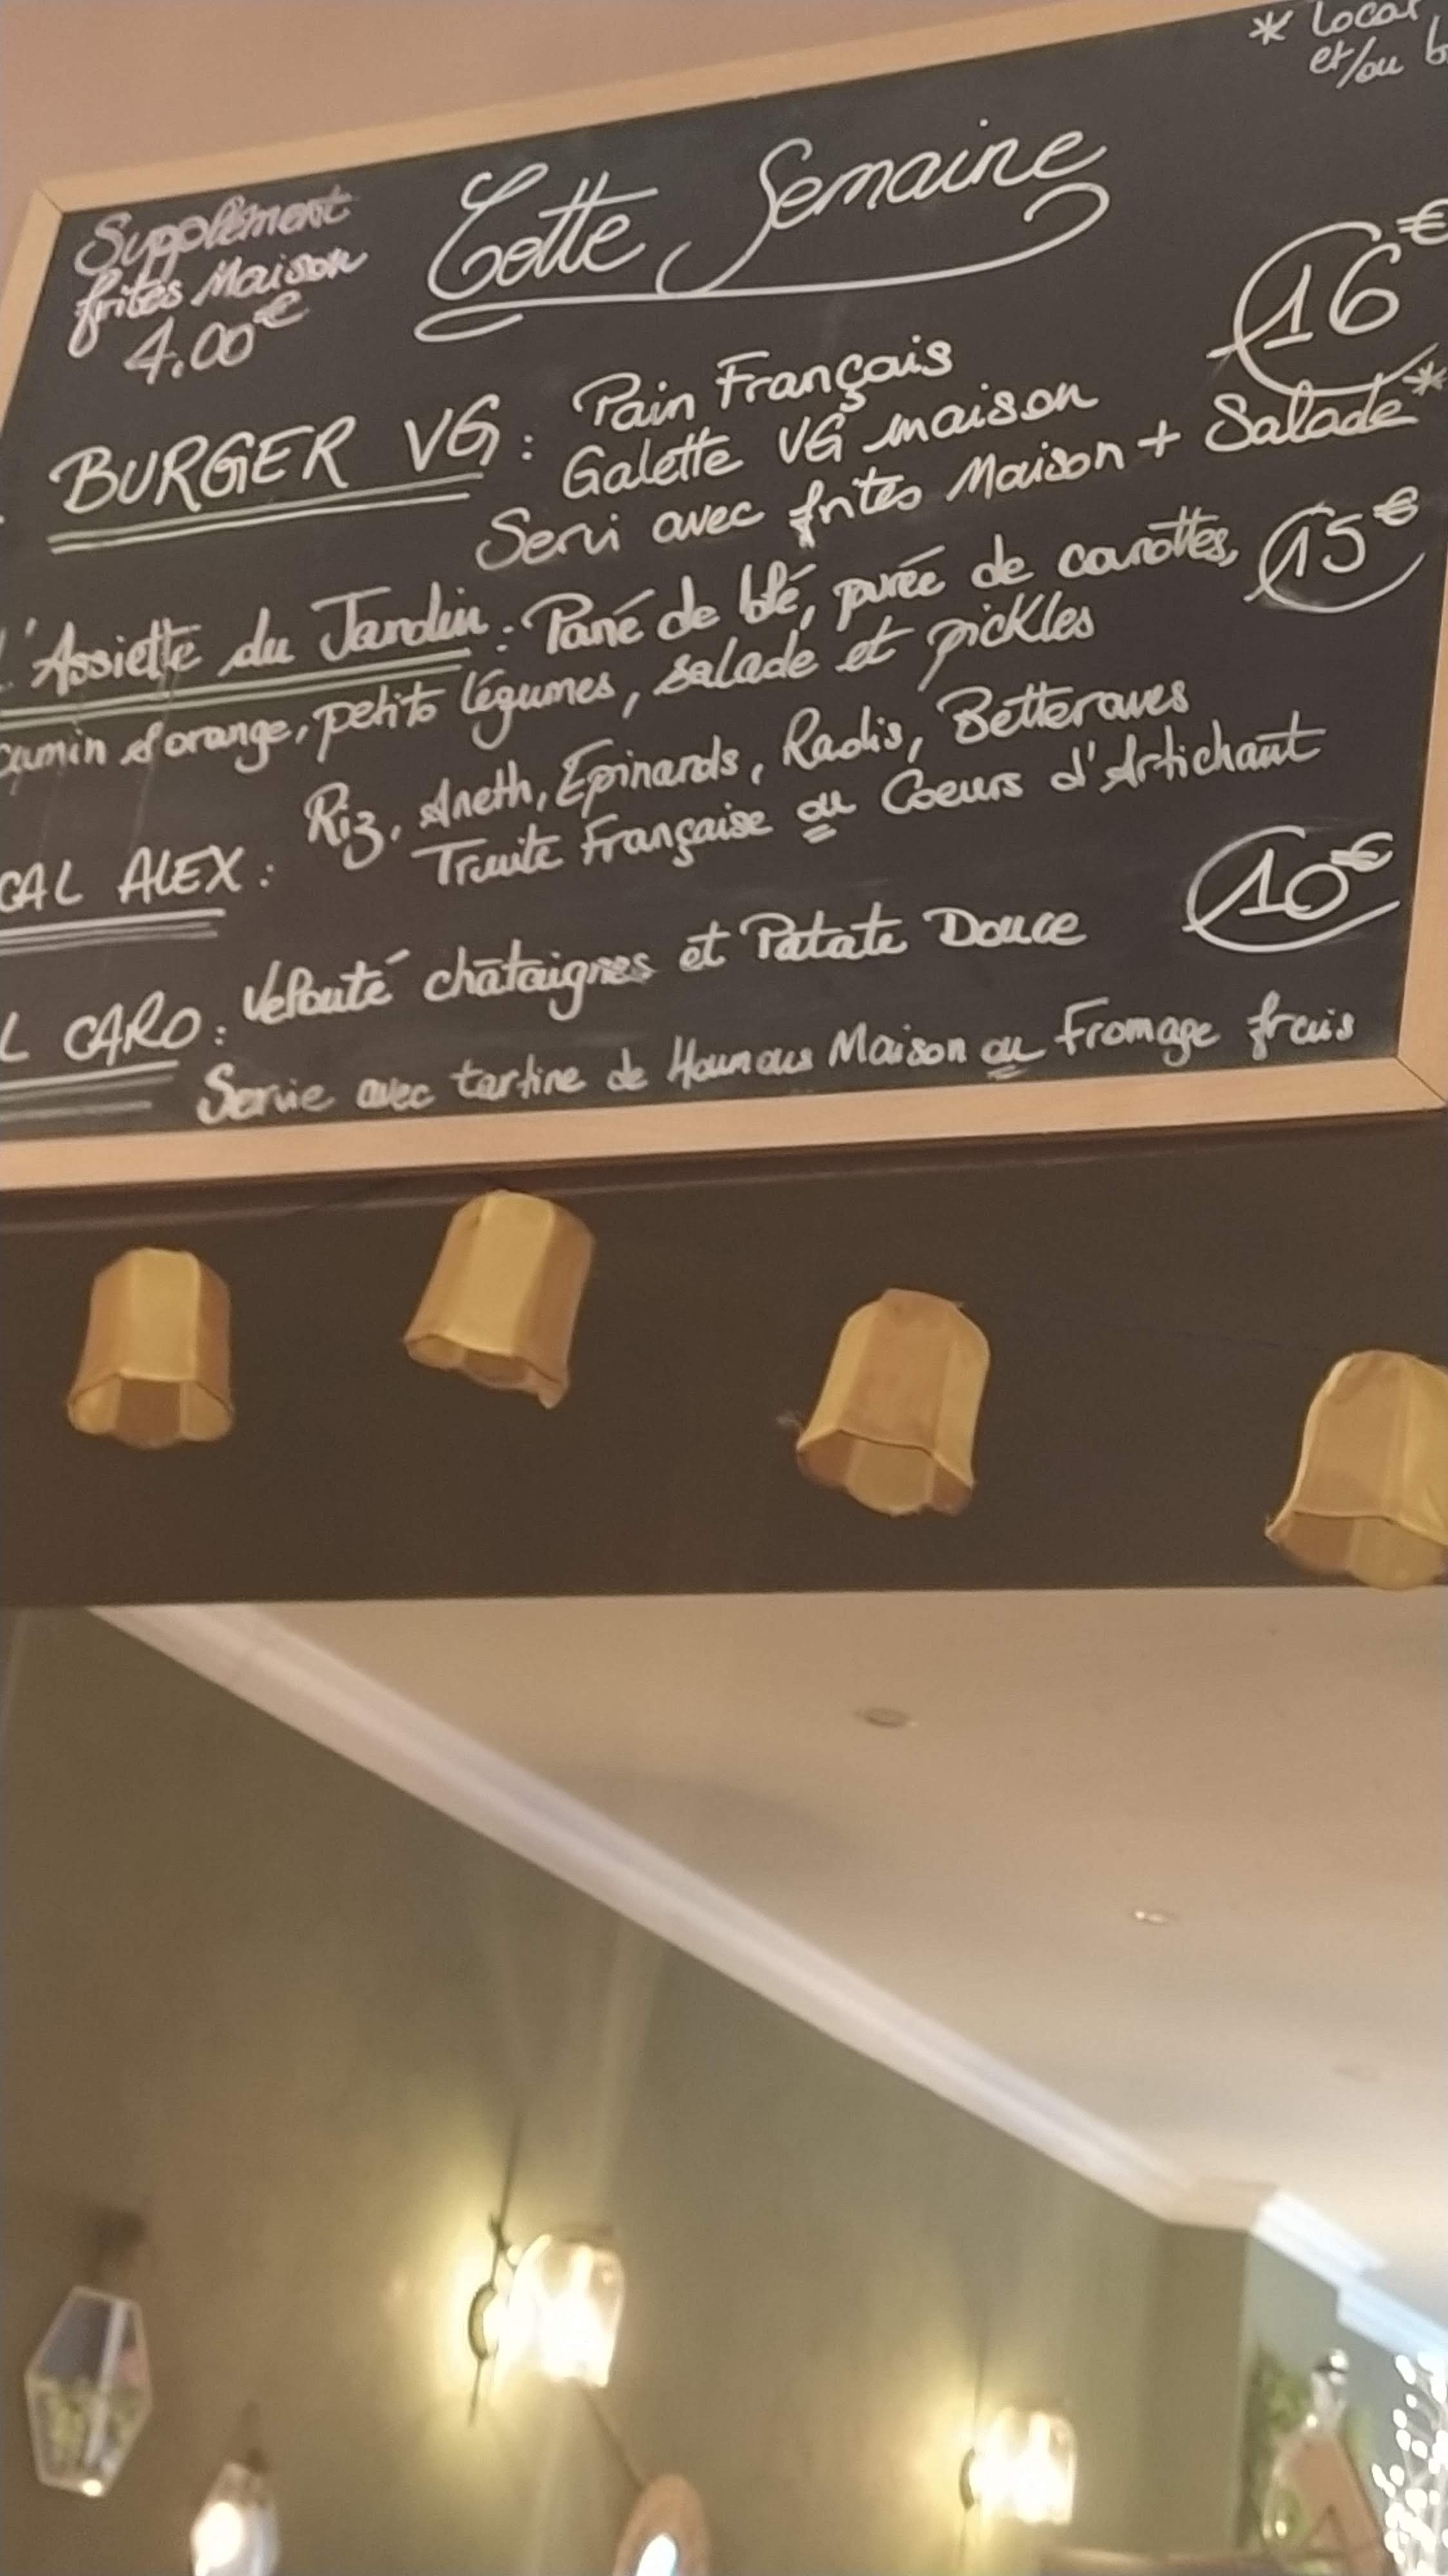 * Local
et/ou b
Supplément
frites Maison
4.00€
Cette Semaine
16€
BURGER VG : Pain Français
Galette VG maison
Servi avec frites Maison + Salade*
L'Assiette du Jardin : Pané de blé, purée de carottes, 15€
cumin & orange, petits légumes, salade et pickles
CAL ALEX : Riz, Aneth, Epinards, Radis, Betteraves
Truite Française ou Coeurs d'Artichaut
10€
L CARO : Velouté châtaignes et Patate Douce
Servie avec tartine de Houmous Maison ou Fromage frais